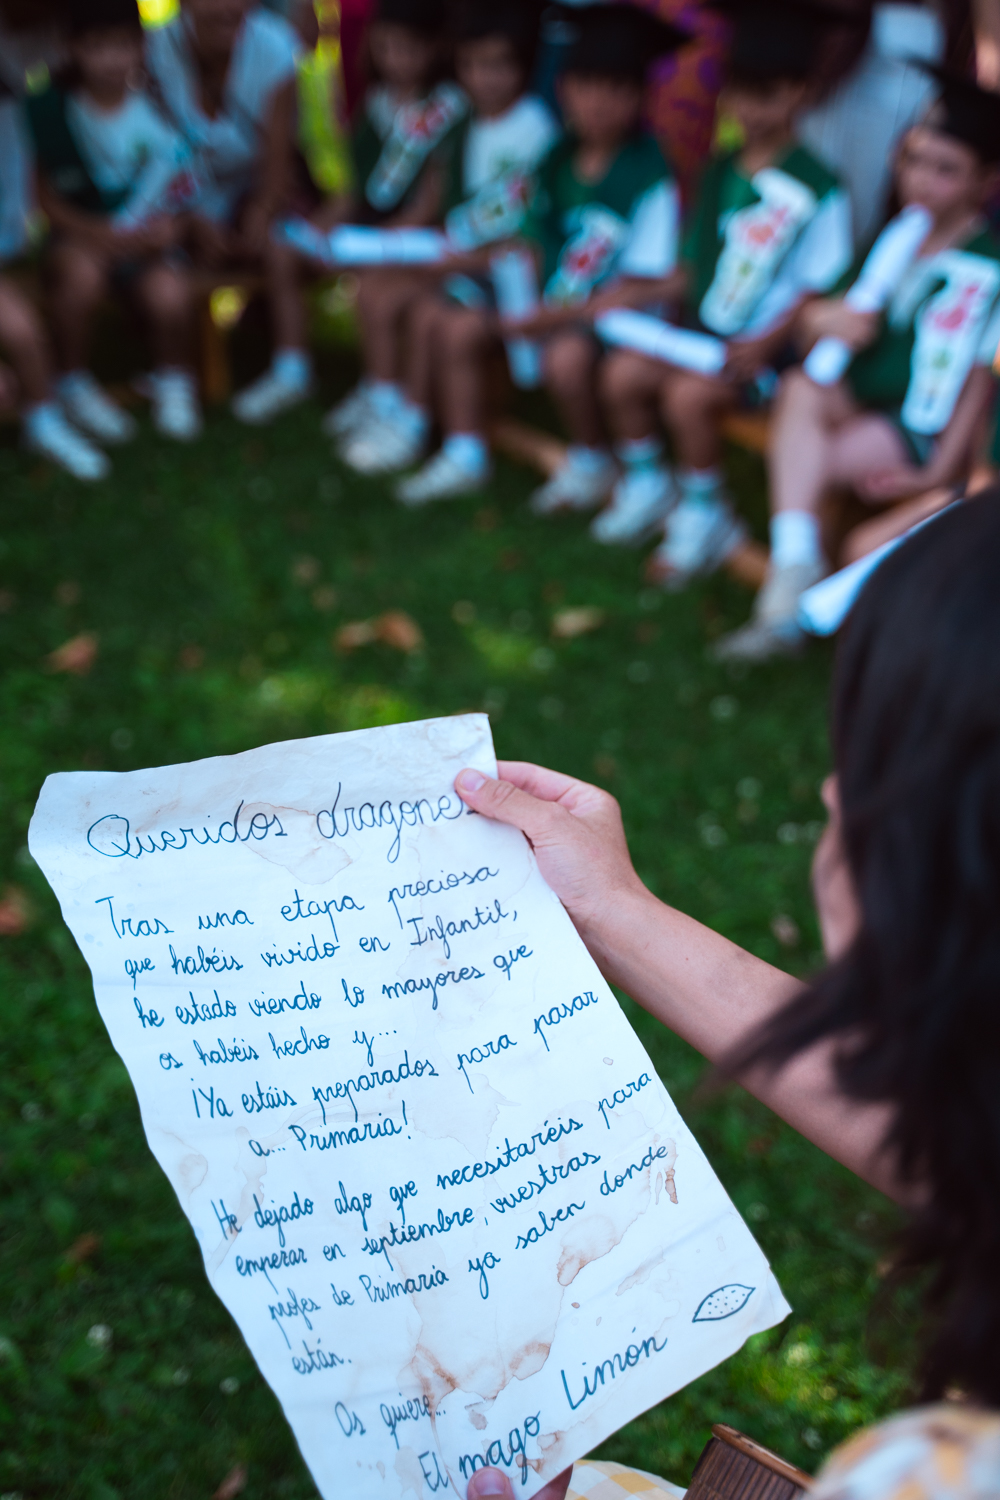 Queridos dragones
Tras una etapa preciosa
que habéis vivido en Infantil,
he estado viendo lo mayores que
os habéis hecho y...
¡Ya estáis preparados para pasar
a... Primaria!
He dejado algo que necesitaréis para
empezar en septiembre, vuestras
profes de Primaria ya saben donde
están.
Os quiere...
El mago Limón